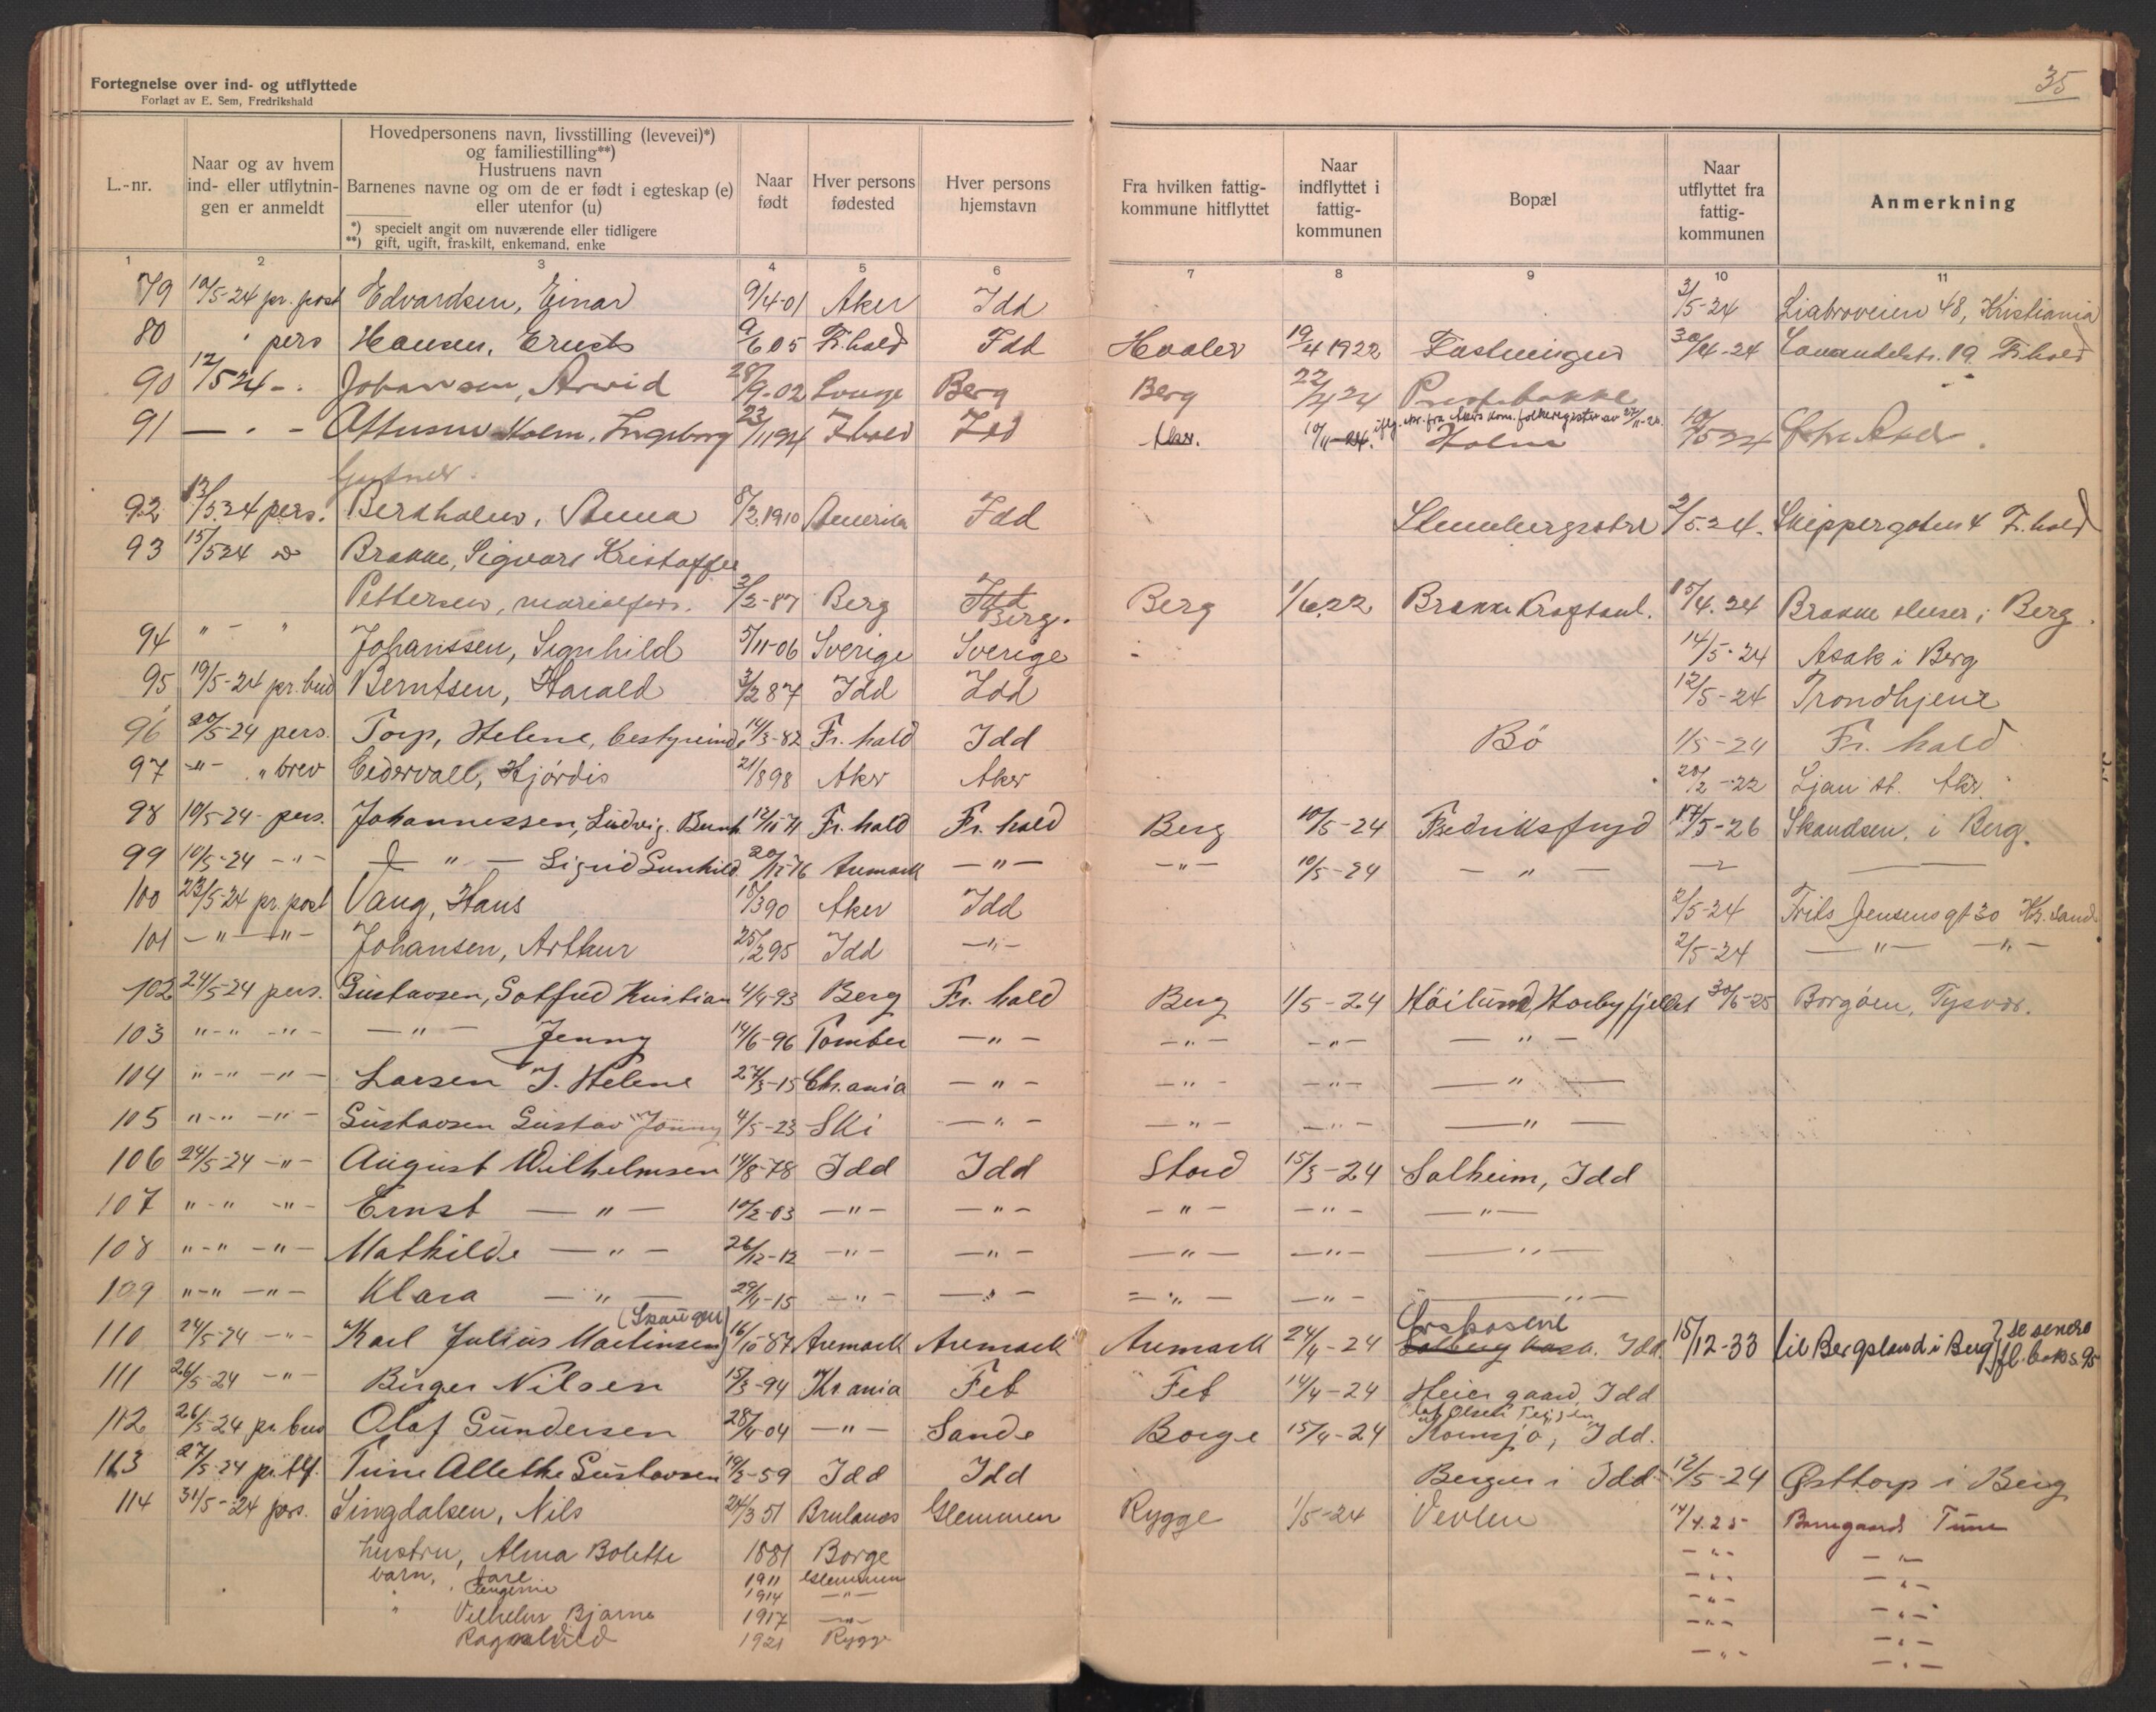 35
Fortegnelse over ind- og utflyttede
Forlagt av E. Sem, Fredrikshald
L.-nr.
Naar og av hvem
ind- eller utflytnin-
gen er anmeldt
Hovedpersonens navn, livsstilling (levevei)*)
og familiestilling**)
Hustruens navn
Barnenes navne og om de er født i egteskap (e)
eller utenfor (u)
*) specielt angit om nuværende eller tidligere
**) gift, ugift, fraskilt, enkemand, enke
Naar
født
Hver persons
fødested
Hver persons
hjemstavn
Fra hvilken fattig-
kommune hitflyttet
Naar
indflyttet i
fattig-
kommunen
Bopæl
Naar
utflyttet fra
fattig-
kommunen
Anmerkning
1 2 3 4 5 6 7 8 9 10 11
79 10/5-24 pr. post Edvardsen, Einar 9/4-01 Aker Idd 3/5-24 Liabroveien 48, Kristiania
80 " pers Hansen, Ernst 9/6 05 Fr.hald Idd Hvaler 19/4 1922 30/4-24 19 Fr.hald
90 12/5 24 - " Johansen, Arvid 28/9-02 Berg Berg 22/4 24 Prestebakke
91 — " - Holm, Ingeborg 23/11 94 Fhald Idd Aker. 10/11-24. Holm 10/5 24
92 13/5 24 pers. Berkholm, Anna 8/2 1910 Amerika Idd 2/5.24. Skippergaten 4 Fr.hald
93 15/5 24 Brække, Sigvart Kristoffer
Pettersen, 3/2-87 Berg Idd Berg. Berg 1/6 22 Brække Kraftanl. 15/4.24 Brække sluser i Berg.
94 " - " Johanssen, Signhild 5/11-06 Sverige Sverige 14/5-24 Asak i Berg
95 19/5-24 pr. bud Berntsen, Harald 3/2 87 Idd Idd 12/5-24 Trondhjem
96 20/5-24 pers. Torp, Helene, bestyrerinde 14/3-82 Fr. hald Idd Bø 1/5-24 Fr. hald
97 -"- " brev Cedervall, Hjørdis 21/8 98 Aker Aker 20/2-22 Ljan st. Aker
98 10/5-24- pers. Johannessen, Ludvig. Bernh. 12/10-71 Fr. hald Fr. hald Berg 10/5-24 Fredriksfryd 17/5-26 Skandsen. i Berg.
99 10/5-24 -"- — " — Sigrid Gunhild 20/12-76 Aremark —"— —"— 10/5-24 — " — — —
100 23/5-24 pr. post Vang, Hans 10/3 90 Aker Idd 2/5-24 Frits Jensens gt 30 Kr. sand.
101 —"— —"— Johansen, Arthur 25/2 95 Idd —"— 2/5-24 —"— —"—
102 24/5-24 pers. Gustavsen, Gotfred Kristian 4/4-93 Berg Fr. hald Berg 1/5-24 Høilund, Horbyfjeldet 30/6-25 Borgøen, Tysvær.
103 "-" -"- —"— Jenny 14/6-96 Tomter —"— —"— —"— — " —
104 "-" -"- Larsen J. Helene 27/3-15 Chr.ania —"— —"— —"— — " —
105 "-" -"- Gustavsen Gustav "Jonny 4/5-23 Ski —"— —"— —"— — " —
106 24/5-24 -"- August Wilhelmsen 14/8-78 Idd Idd Stord 15/3-24 Solheim, Idd
107 "-" -"- Ernst —"— 10/2-03 —"— —"— —"— —"— —"—
108 "-" -"- Mathilde —"— 26/12-12 —"— —"— —"— —"— —"—
109 "-" -"- Klara —"— 29/4-15 —"— —"— —"— —"— —"—
(Skaugen)
110 24/5-24 -"- Karl Julius Martinsen 16/10-87 Aremark Aremark Aremark 24/4-24 Idd. 15/12-33 til Bergsland i Berg } se senere fl. bok s. 95
111 26/5-24 -"- Birger Nilsen 15/3-94 Kr.ania Fet Fet 14/4-24 Heier gaard, Idd
112 26/5-24 pr. bud Olaf Gundersen 28/4-04 —"— Sande Borge 15/4-24 Kornsjø, Idd.
113 27/5-24 pr. tlf. Tine Allethe Gustavsen 19/3-59 Idd Idd Bergen i Idd 12/5-24 Østtorp i Berg
114 31/5-24 pers. Singdalsen, Nils 24/3 51 Glemmen Rygge 1/5-24 14/4.25 Tune
hustru, Alma Bolette 1881 Borge -"- —"—
barn, Kåre 1911 Glemmen -"- —"—
" Eugenie 1914 —"— -"- —"—
" Vilhelm Bjarne 1917 —"— -"- —"—
Ragnhild 1921 Rygge -"- —"—